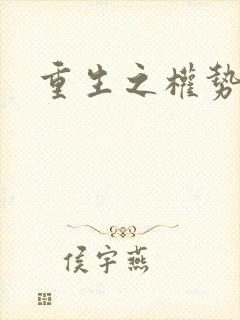 重生之權勢
侯宇燕